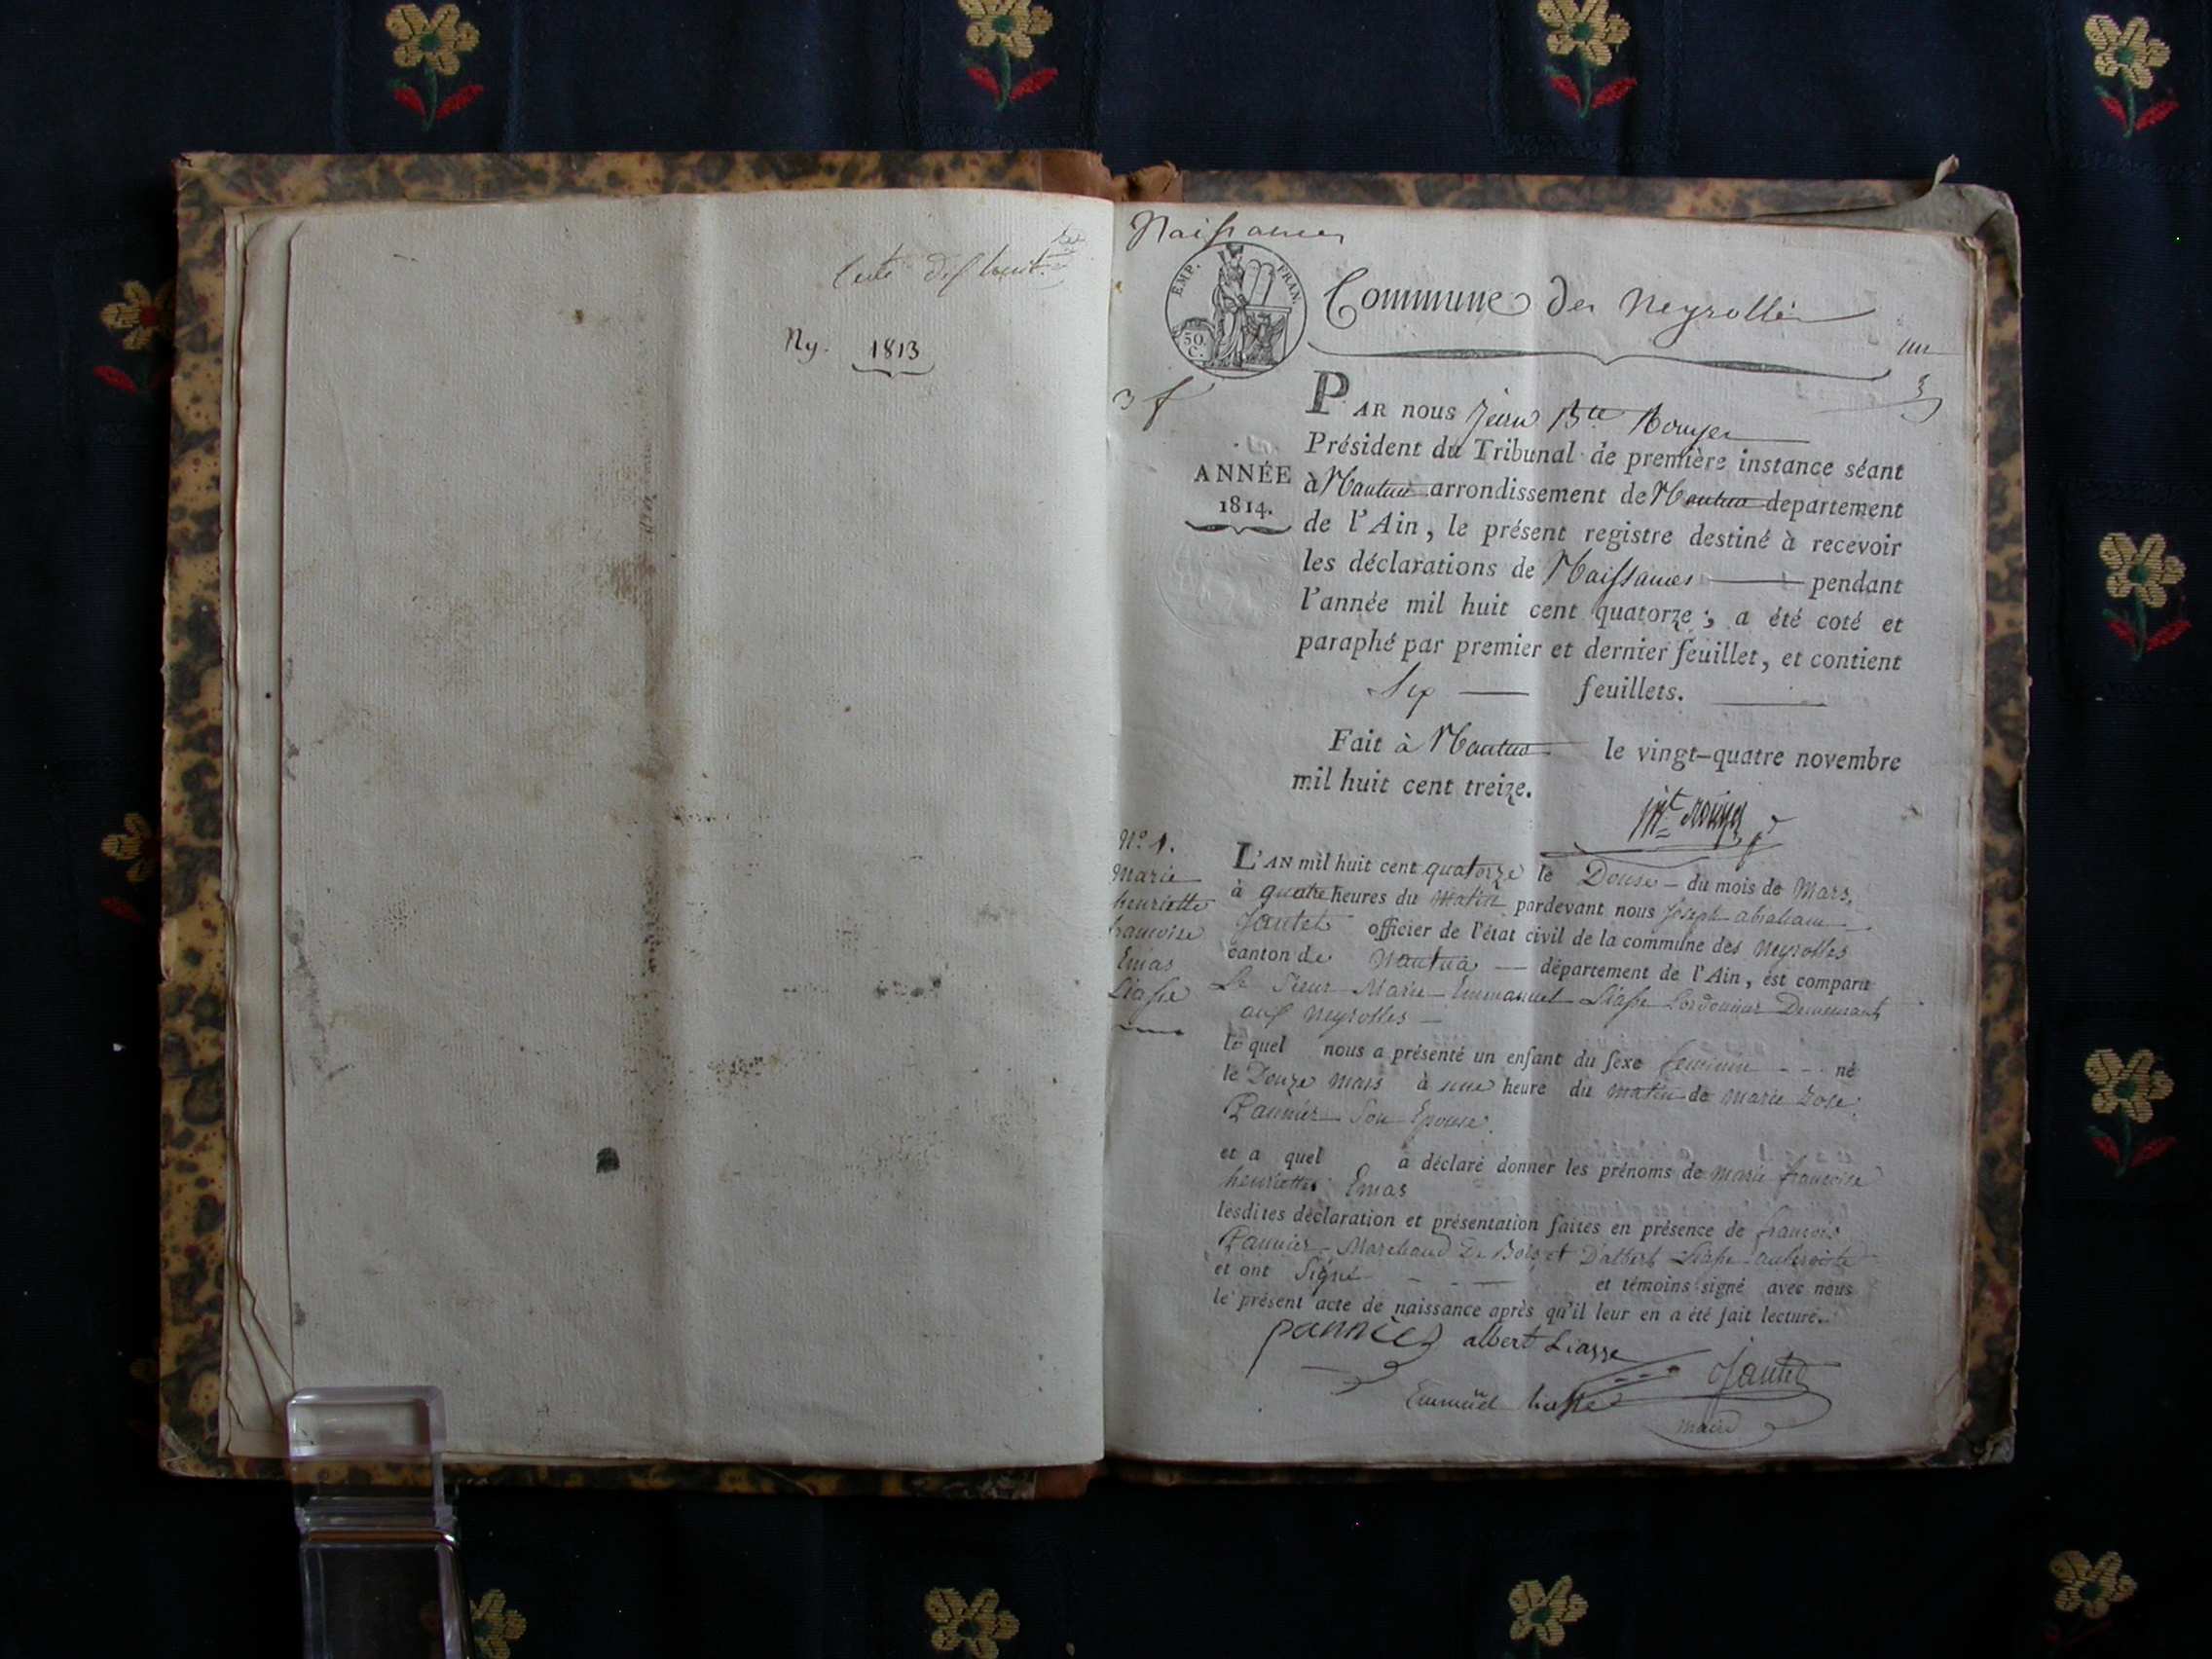 Ny. 1813
Naissances
EMP. FRAN.
50. C.
Commune des Neyrolles
un
3 f
PAR nous Jean Bte Rouyer
Président du Tribunal de première instance séant
ANNÉE
1814.
à Nantua arrondissement de Nantua departement
de l'Ain, le présent registre destiné à recevoir
les déclarations de Naissances pendant
l'année mil huit cent quatorze; a été coté et
paraphé par premier et dernier feuillet, et contient
six feuillets.
Fait à Nantua le vingt-quatre novembre
mil huit cent treize.
Rouyer
N.º 1.
Marie
henriette
francoise
Emas
Liasse
L'AN mil huit cent quatorze le Douse du mois de Mars,
à quatre heures du Matin pardevant nous Joseph abraham
Jantet officier de l'état civil de la commune des Neyrolles
canton de Nantua département de l'Ain, est comparu
Le Sieur Marie Emmanuel Liasse Cordonnier Demeurant
aux Neyrolles
le quel nous a présenté un enfant du sexe feminin né
le Douze Mars à une heure du matin de Marie Rose
Pannier Son Epouse.
et a quel a déclaré donner les prénoms de Marie francoise
henriette Emas
lesdites déclaration et présentation faites en présence de francois
Pannier Marchand De Bois et D'albert Liasse aubergiste
et ont Signé et témoins signé avec nous
le présent acte de naissance après qu'il leur en a été fait lecture.
pannier albert Liasse
Jantet
Emmüel liasse
maire